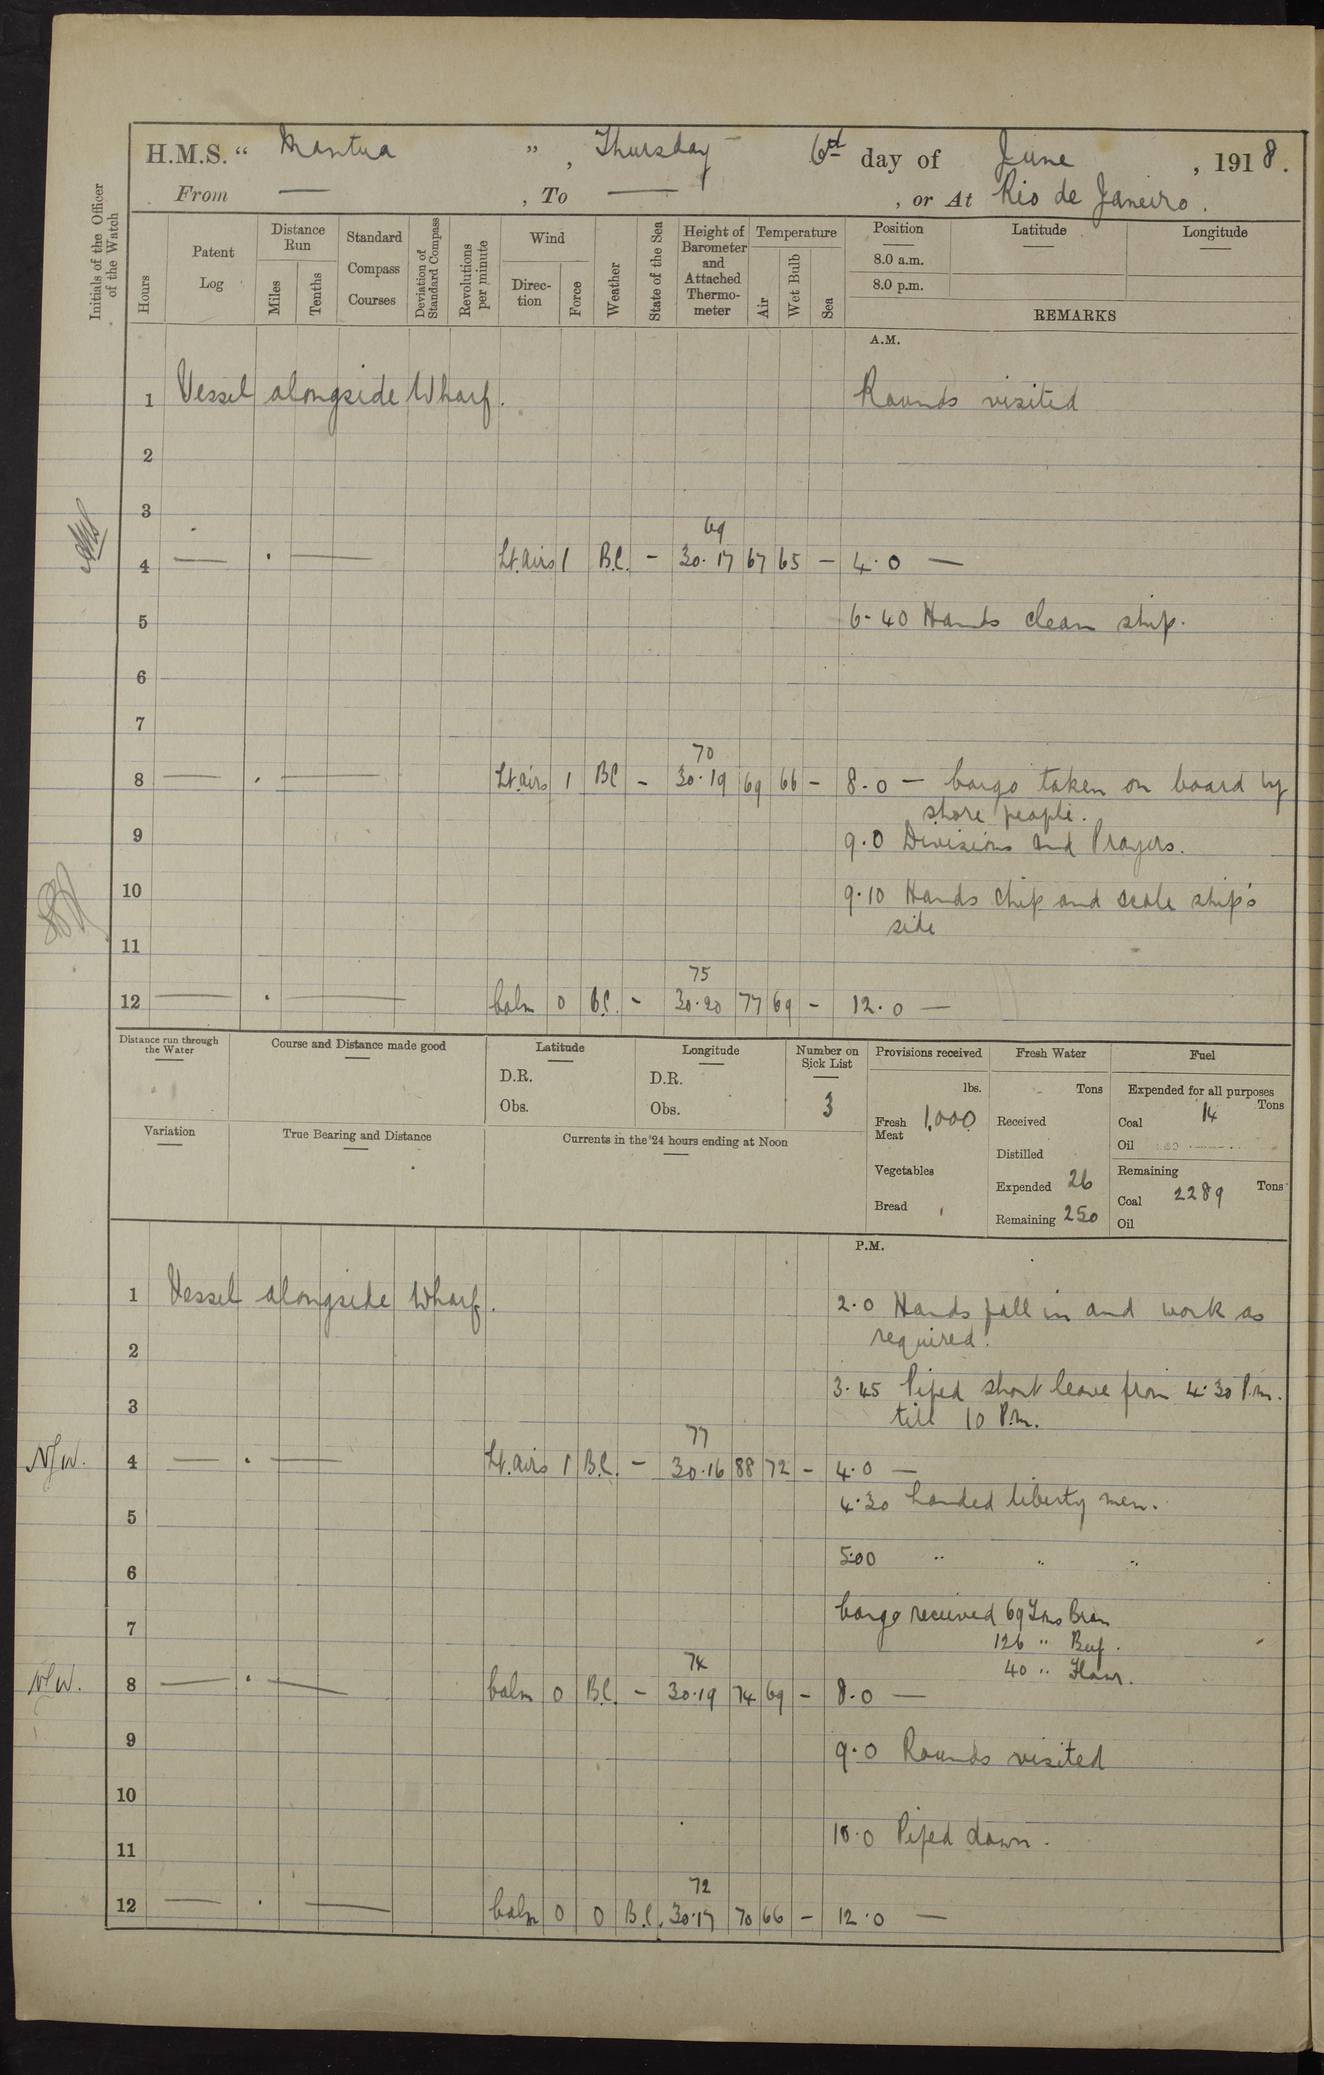 H.M.S. “ Mantua ” , Thursday 6th day of June , 1918.
From — , To — , or At Rio de Janeiro.
Initials of the Officer of the Watch
Hours
Patent Log
Distance Run
Miles
Tenths
Standard Compass Courses
Deviation of Standard Compass
Revolutions per minute
Wind
Direction
Force
Weather
State of the Sea
Height of Barometer and Attached Thermometer
Temperature
Air
Wet Bulb
Sea
Position
8.0 a.m.
8.0 p.m.
Latitude
Longitude
REMARKS
A.M.
1 Vessel alongside Wharf. Rounds visited
2
3
69
4 — . — Lt. airs 1 B.C. - 30.17 67 65 - 4.0 —
5 6-40 Hands clean ship.
6
7
70
8 — . — Lt. airs 1 BC - 30.19 69 66 - 8.0 — Cargo taken on board by
shore people.
9 9.0 Divisions and Prayers.
10 9.10 Hands chip and scale ship's
side
11
75
12 — . — Calm 0 B.C. - 30.20 77 69 - 12.0 —
Distance run through the Water
Course and Distance made good
Latitude
D.R.
Obs.
Longitude
D.R.
Obs.
Number on Sick List
3
Provisions received
lbs.
Fresh Meat 1,000
Vegetables
Bread
Fresh Water
Tons
Received
Distilled
Expended 26
Remaining 250
Fuel
Expended for all purposes
Tons
Coal 14
Oil
Remaining
Tons
Coal 2289
Oil
Variation
True Bearing and Distance
Currents in the 24 hours ending at Noon
P.M.
1 Vessel alongside Wharf. 2.0 Hands fall in and work as
required.
2
3 3.45 Piped short leave from 4.30 P.m.
till 10 P.m.
77
N/W. 4 — . — Lt. airs 1 B.C. - 30.16 88 72 - 4.0 —
4.30 Landed liberty men.
5
5.00 " " "
6
7 Cargo received 69 Tons Bran
126 " Beef.
40 " Flour.
74
N/W. 8 — . — Calm 0 B.C. - 30.19 74 69 - 8.0 —
9 9.0 Rounds visited
10
10.0 Piped down.
11
72
12 — . — Calm 0 0 B.C. 30.17 70 66 - 12.0 —